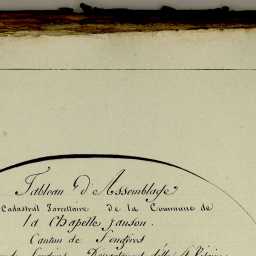 Tableau d'Assemblage
Cadastral Parcellaire de la Commune de
La Chapelle Janson.
Canton de Fougères
Département d'Ille & Vilaine